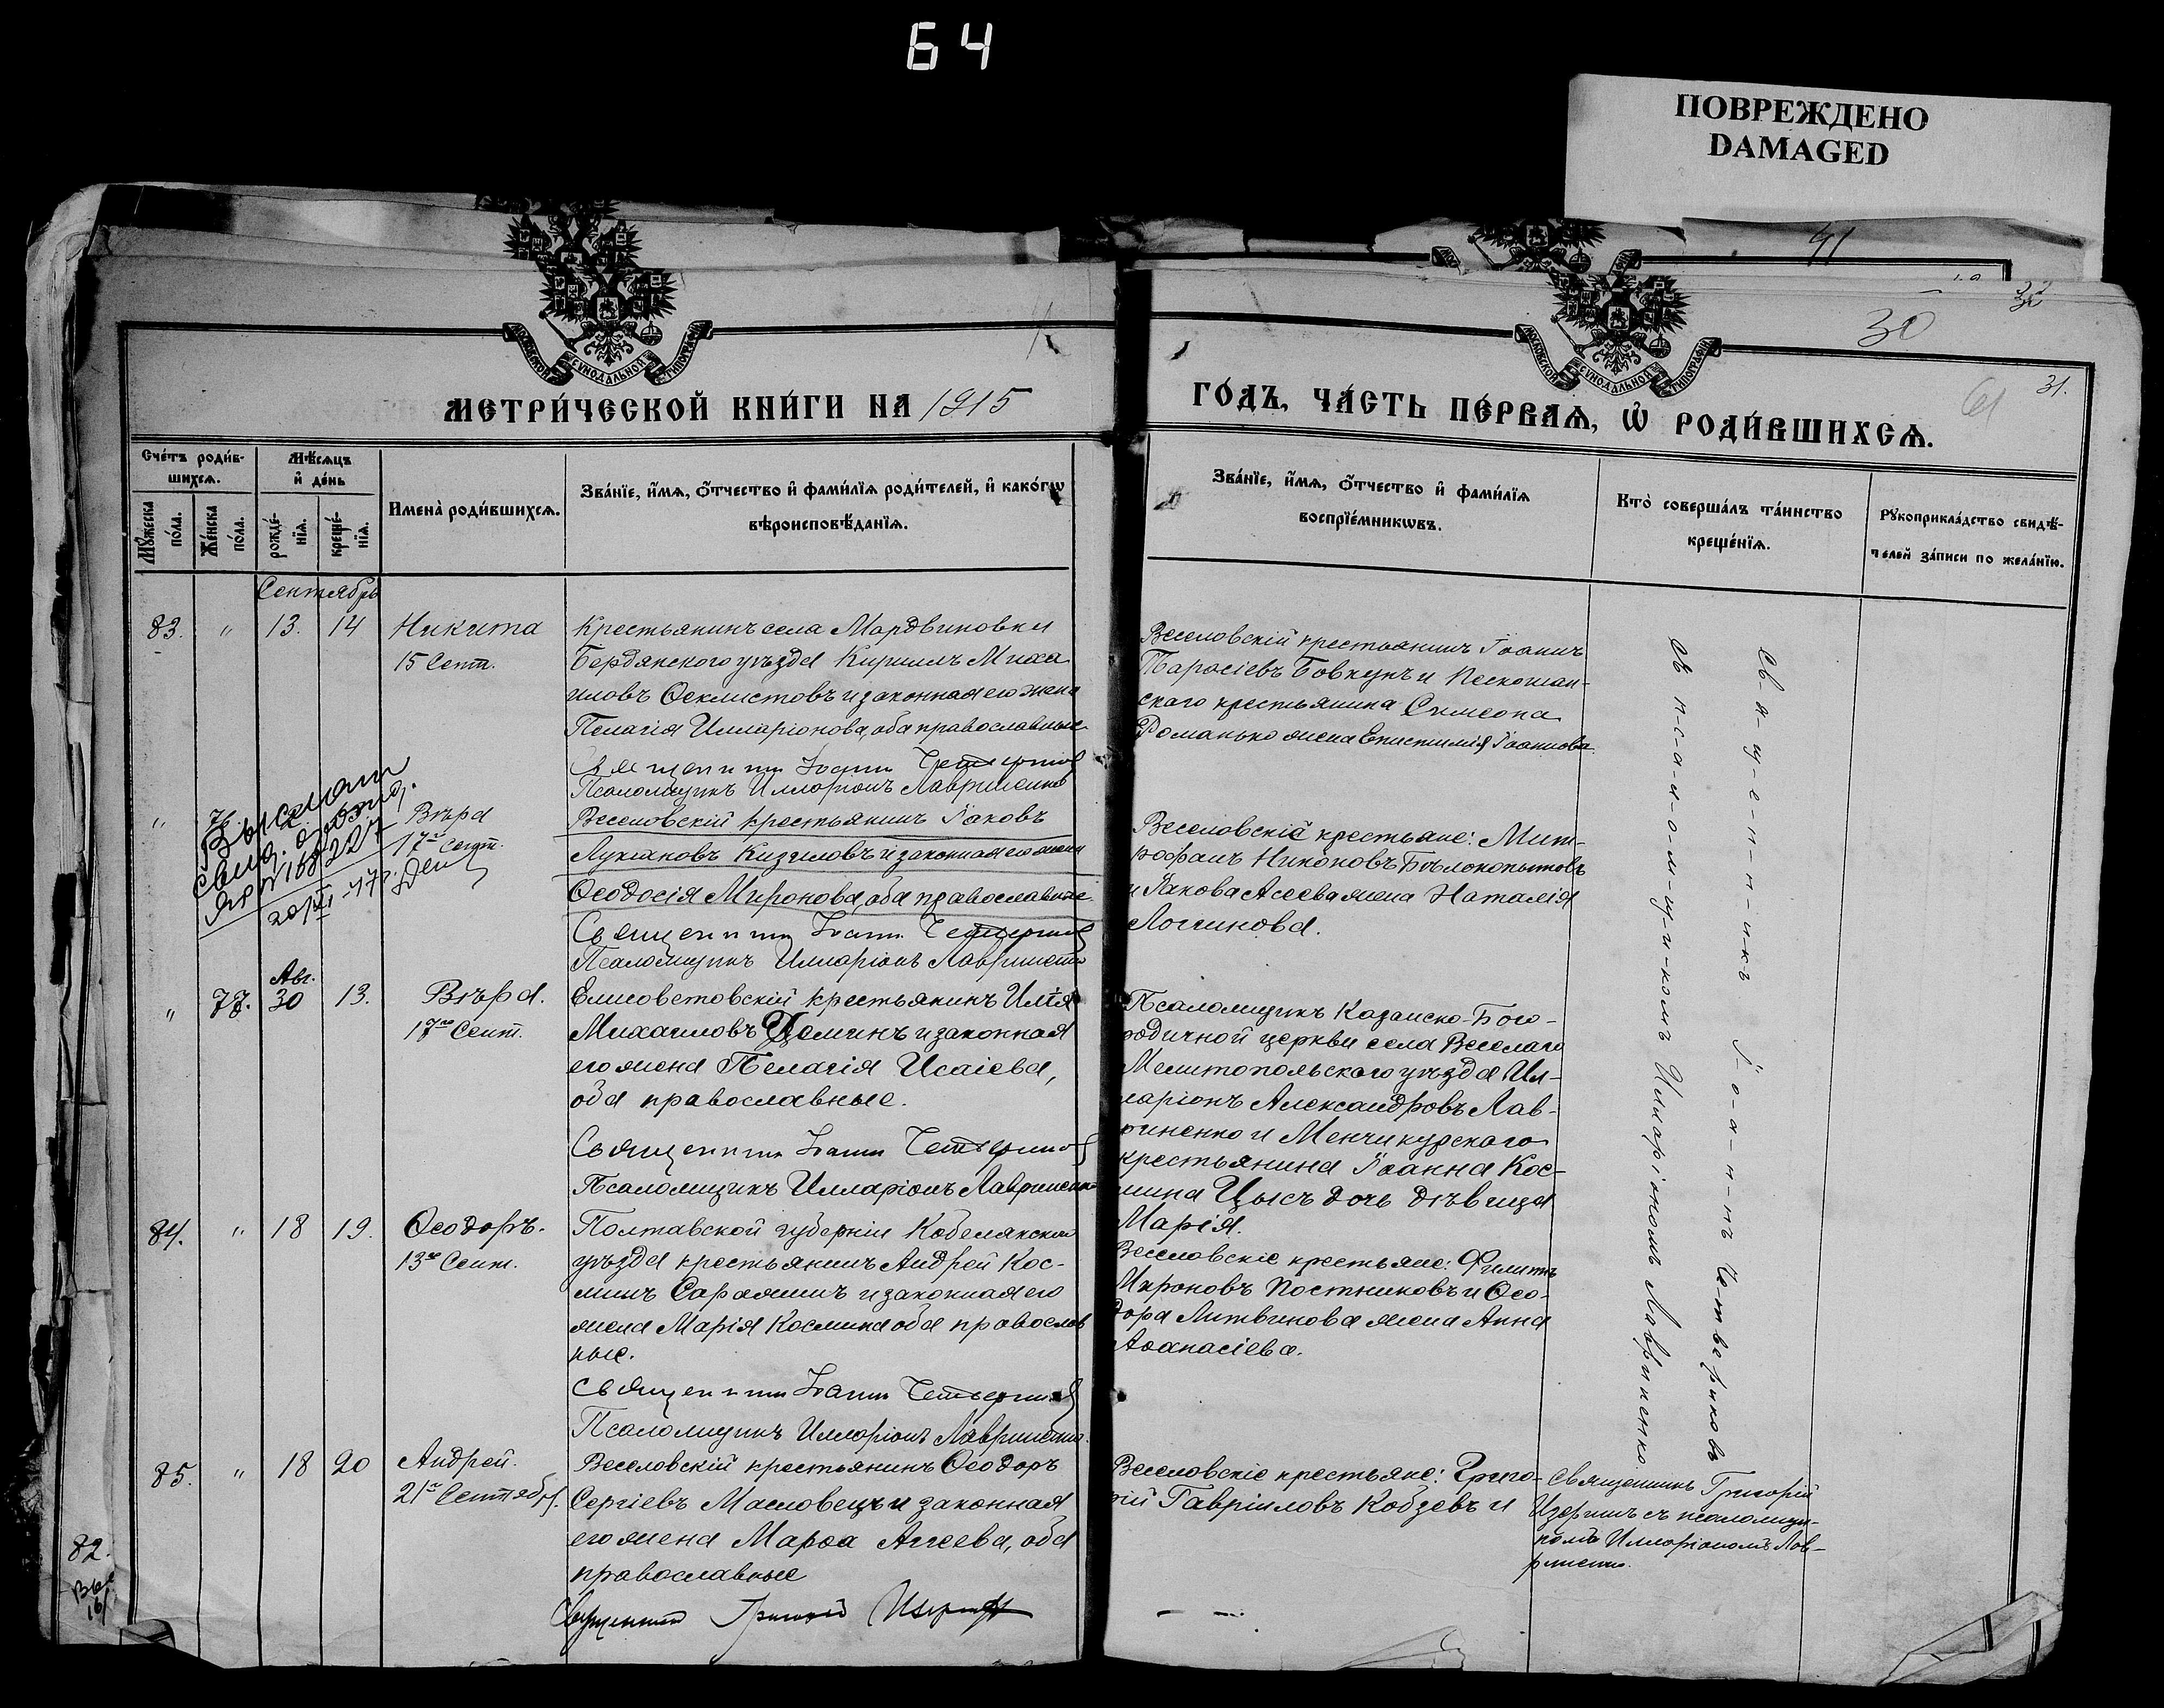 64
ПОВРЕЖДЕНО
DAMAGED
41
30
61
31.
МЕТРИ́ЧЕСКОЙ КНИ́ГИ НА 1915
ГО́ДЪ, ЧА́СТЬ ПЕ́РВАѦ, Ѡ҆ РОДИ́ВШИХСѦ.
МОСКОВСКОЙ СѴНОДАЛЬНОЙ ТИПОГРАФІИ
МОСКОВСКОЙ СѴНОДАЛЬНОЙ ТИПОГРАФІИ
Сче́тъ роди́в-
шихсѧ.
Мѣ́сѧцъ
и҆ де́нь
Мꙋ́жеска
по́ла.
Же́нска
по́ла.
рожде́-
нїѧ.
креще́-
нїѧ.
Имена̀ роди́вшихсѧ.
Зва́нїе, и҆́мѧ, ѻ҆́тчество и҆ фами́лїѧ роди́телей, и҆ како́гѡ
вѣроисповѣ́данїѧ.
Зва́нїе, и҆́мѧ, ѻ҆́тчество и҆ фами́лїѧ
воспрїе́мникѡвъ.
Кто̀ соверша́лъ та́инство
креще́нїѧ.
Рꙋкоприкла́дство свидѣ́-
телей за́писи по жела́нїю.
Сентябрь
83. " 13. 14 Никита
15 Сент.
Крестьянинъ села Мордвиновки
Бердянского уѣзда Кирилъ Миха
иловъ Ѳеклистовъ и законная его жена
Пелагія Илларіонова, оба православные
Священникъ Іоаннъ Четвериковъ
Псаломщикъ Илларіонъ Лавриненко
Веселовскій крестьянинъ Іоаннъ
Тарасіевъ Бовкунъ и Пескошан-
скаго крестьянина Симеона
Романько жена Епистимія Іоаннова.
" 76.
Выслан
свид. о рожд.
20/XI-47 г.
Вѣра
17го Сент.
Веселовскій крестьянинъ Іаковъ
Лукіановъ Кизиловъ и законная его жена
Ѳеодосія Миронова, оба православные
Священникъ Іоаннъ Четвериковъ
Псаломщикъ Илларіонъ Лавриненко
Веселовскіе крестьяне: Мит-
рофанъ Никоновъ Бѣлокопытовъ
и Іакова Асеева жена Наталія
Логгинова.
" 77. Авг. 30 13. Вѣра.
17го Сент.
Елисоветовскій крестьянинъ Илія
Михаиловъ Доминъ и законная
его жена Пелагія Исаіева,
оба православные.
Священникъ Іоаннъ Четвериковъ
Псаломщикъ Илларіонъ Лавриненко
Псаломщикъ Казанско-Бого-
родичной церкви села Веселаго
Мелитопольского уѣзда Ил-
ларіонъ Александровъ Лав-
риненко и Менчикурскаго
крестьянина Іоанна Кос-
мина Цысъ дочь дѣвица
Марія.
84. " 18 19. Ѳеодоръ.
13го Сент.
Полтавской губерніи Кобелякского
уѣзда крестьянинъ Андрей Кос-
минъ Саражинъ и законная его
жена Марія Космина оба православ
ные.
Священникъ Іоаннъ Четвериковъ
Псаломщикъ Илларіонъ Лавриненко.
Веселовскіе крестьяне: Филиппъ
Мироновъ Постниковъ и Ѳео-
дора Литвинова жена Анна
Аѳанасіева.
85. " 18 20 Андрей.
21го Сентября.
Веселовскій крестьянинъ Ѳеодоръ
Сергіевъ Масловецъ и законная
его жена Марѳа Аггеева, оба
православные
Священникъ Григорій
Веселовскіе крестьяне: Григо-
рій Гавріиловъ Кобзевъ и
Священникъ Григорій
съ псаломщи-
комъ Илларіономъ Лав-
риненко.
Св-я-щ-е-н-н-и-къ І-о-а-н-н-ъ Че-т-ве-риковъ
съ п-с-а-л-о-м-щ-и-комъ Илларіономъ Лавриненко
82.